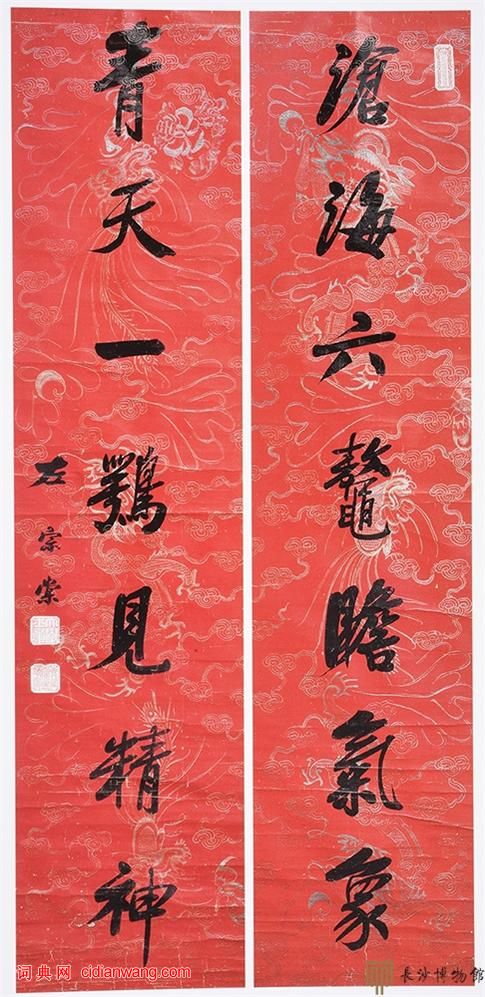 滄海六鼇瞻氣象
青天一鶚見精神
左宗棠
词典网 cidianwang.com
長沙博物館